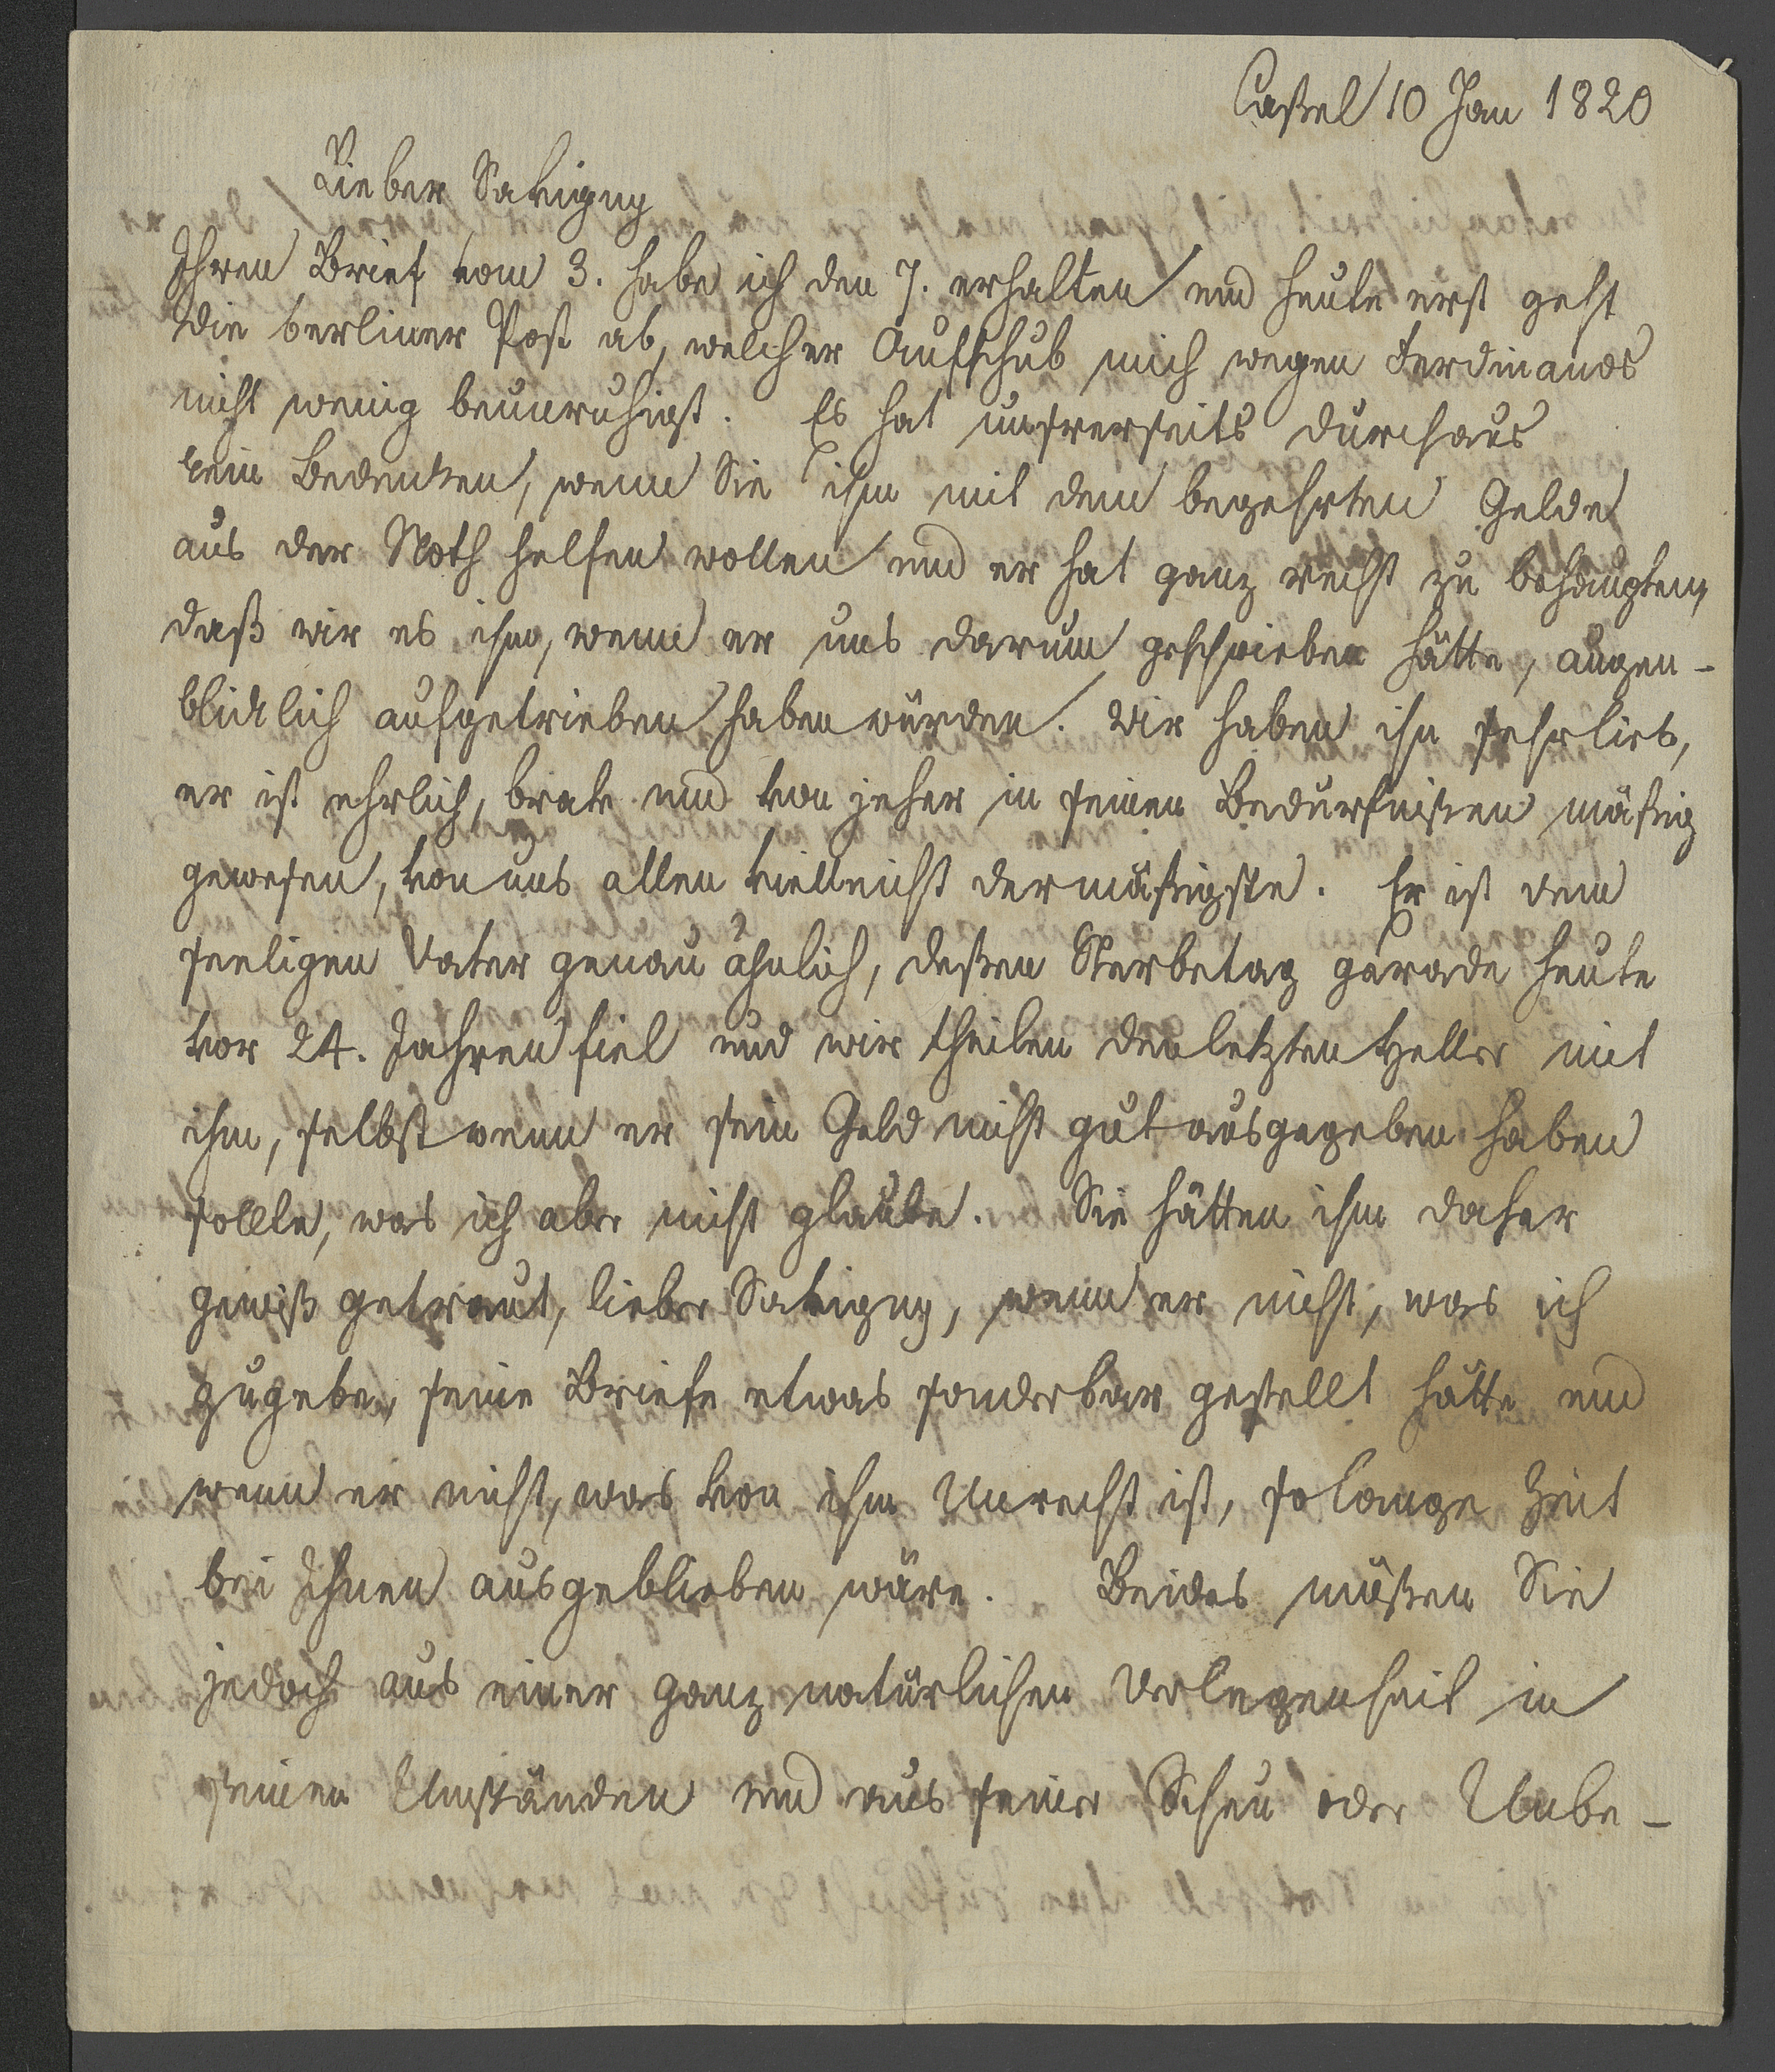 Caßel 10 Jan 1820
Lieber Savigny
Ihren Brief vom 3. habe ich den 7. erhalten und heute erst geht
die berliner Post ab, welcher Aufschub mich wegen Ferdinands
nicht wenig beunruhigt. Es hat unsrerseits durchaus
kein Bedenken, wenn Sie ihm mit dem begehrten Gelde
aus der Noth helfen wollen und er hat ganz recht zu behaupten,
daß wir es ihm, wenn er uns darum geschrieben hätte, augen-
blicklich aufgetrieben haben würden. Wir haben ihn sehr lieb,
er ist ehrlich, brav und von jeher in seinen Bedürfnißen mäßig
gewesen, von uns allen vielleicht der mäßigste. Er ist dem
seeligen Vater genau ähnlich, deßen Sterbetag gerade heute
vor 24. Jahren fiel und wir theilen den letzten Heller mit
ihm, selbst wenn er sein Geld nicht gut ausgegeben haben
sollte, was ich aber nicht glaube. Sie hätten ihm daher
gewiß getraut, lieber Savigny, wenn er nicht, was ich
zugebe, seine Briefe etwas sonderbar gestellt hätte und
wenn er nicht, was von ihm Unrecht ist, so lange Zeit
bei Ihnen ausgeblieben wäre. Beides müßen Sie
jedoch aus einer ganz natürlichen Verlegenheit in
seinen Umständen und aus seiner Scheu oder Unbe-